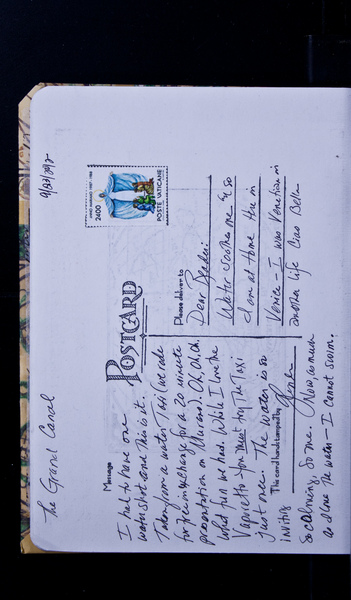 The Grand Canal
9/23/292
POSTCARD
ANNO MARIANO 1987-1988
2400
POSTE VATICANE
Message
I had to have one
water shot and this is it.
Taken from a water Taxi we rode
for free in exchange for a 20 minute
presentation on Murano). Oh, Oh, Oh
what fun we had. While I love the
Vaporetto You must try the Taxi
just once. The water is so
inviting
This card handstamped by
So calming, so me. Now, as much
as I love the water - I cannot swim.
Please deliver to
Dear
Water soothes me & so
I am at home here in
Venice - I was Venetian in
another life Ciao Bella